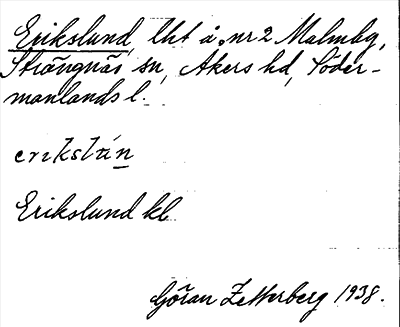 Erikslund, lht å nr 2 Malmby,
Strängnäs sn, Åkers hd, Söder-
manlands l.
Erikslund kl
Göran Zetterberg 1938.